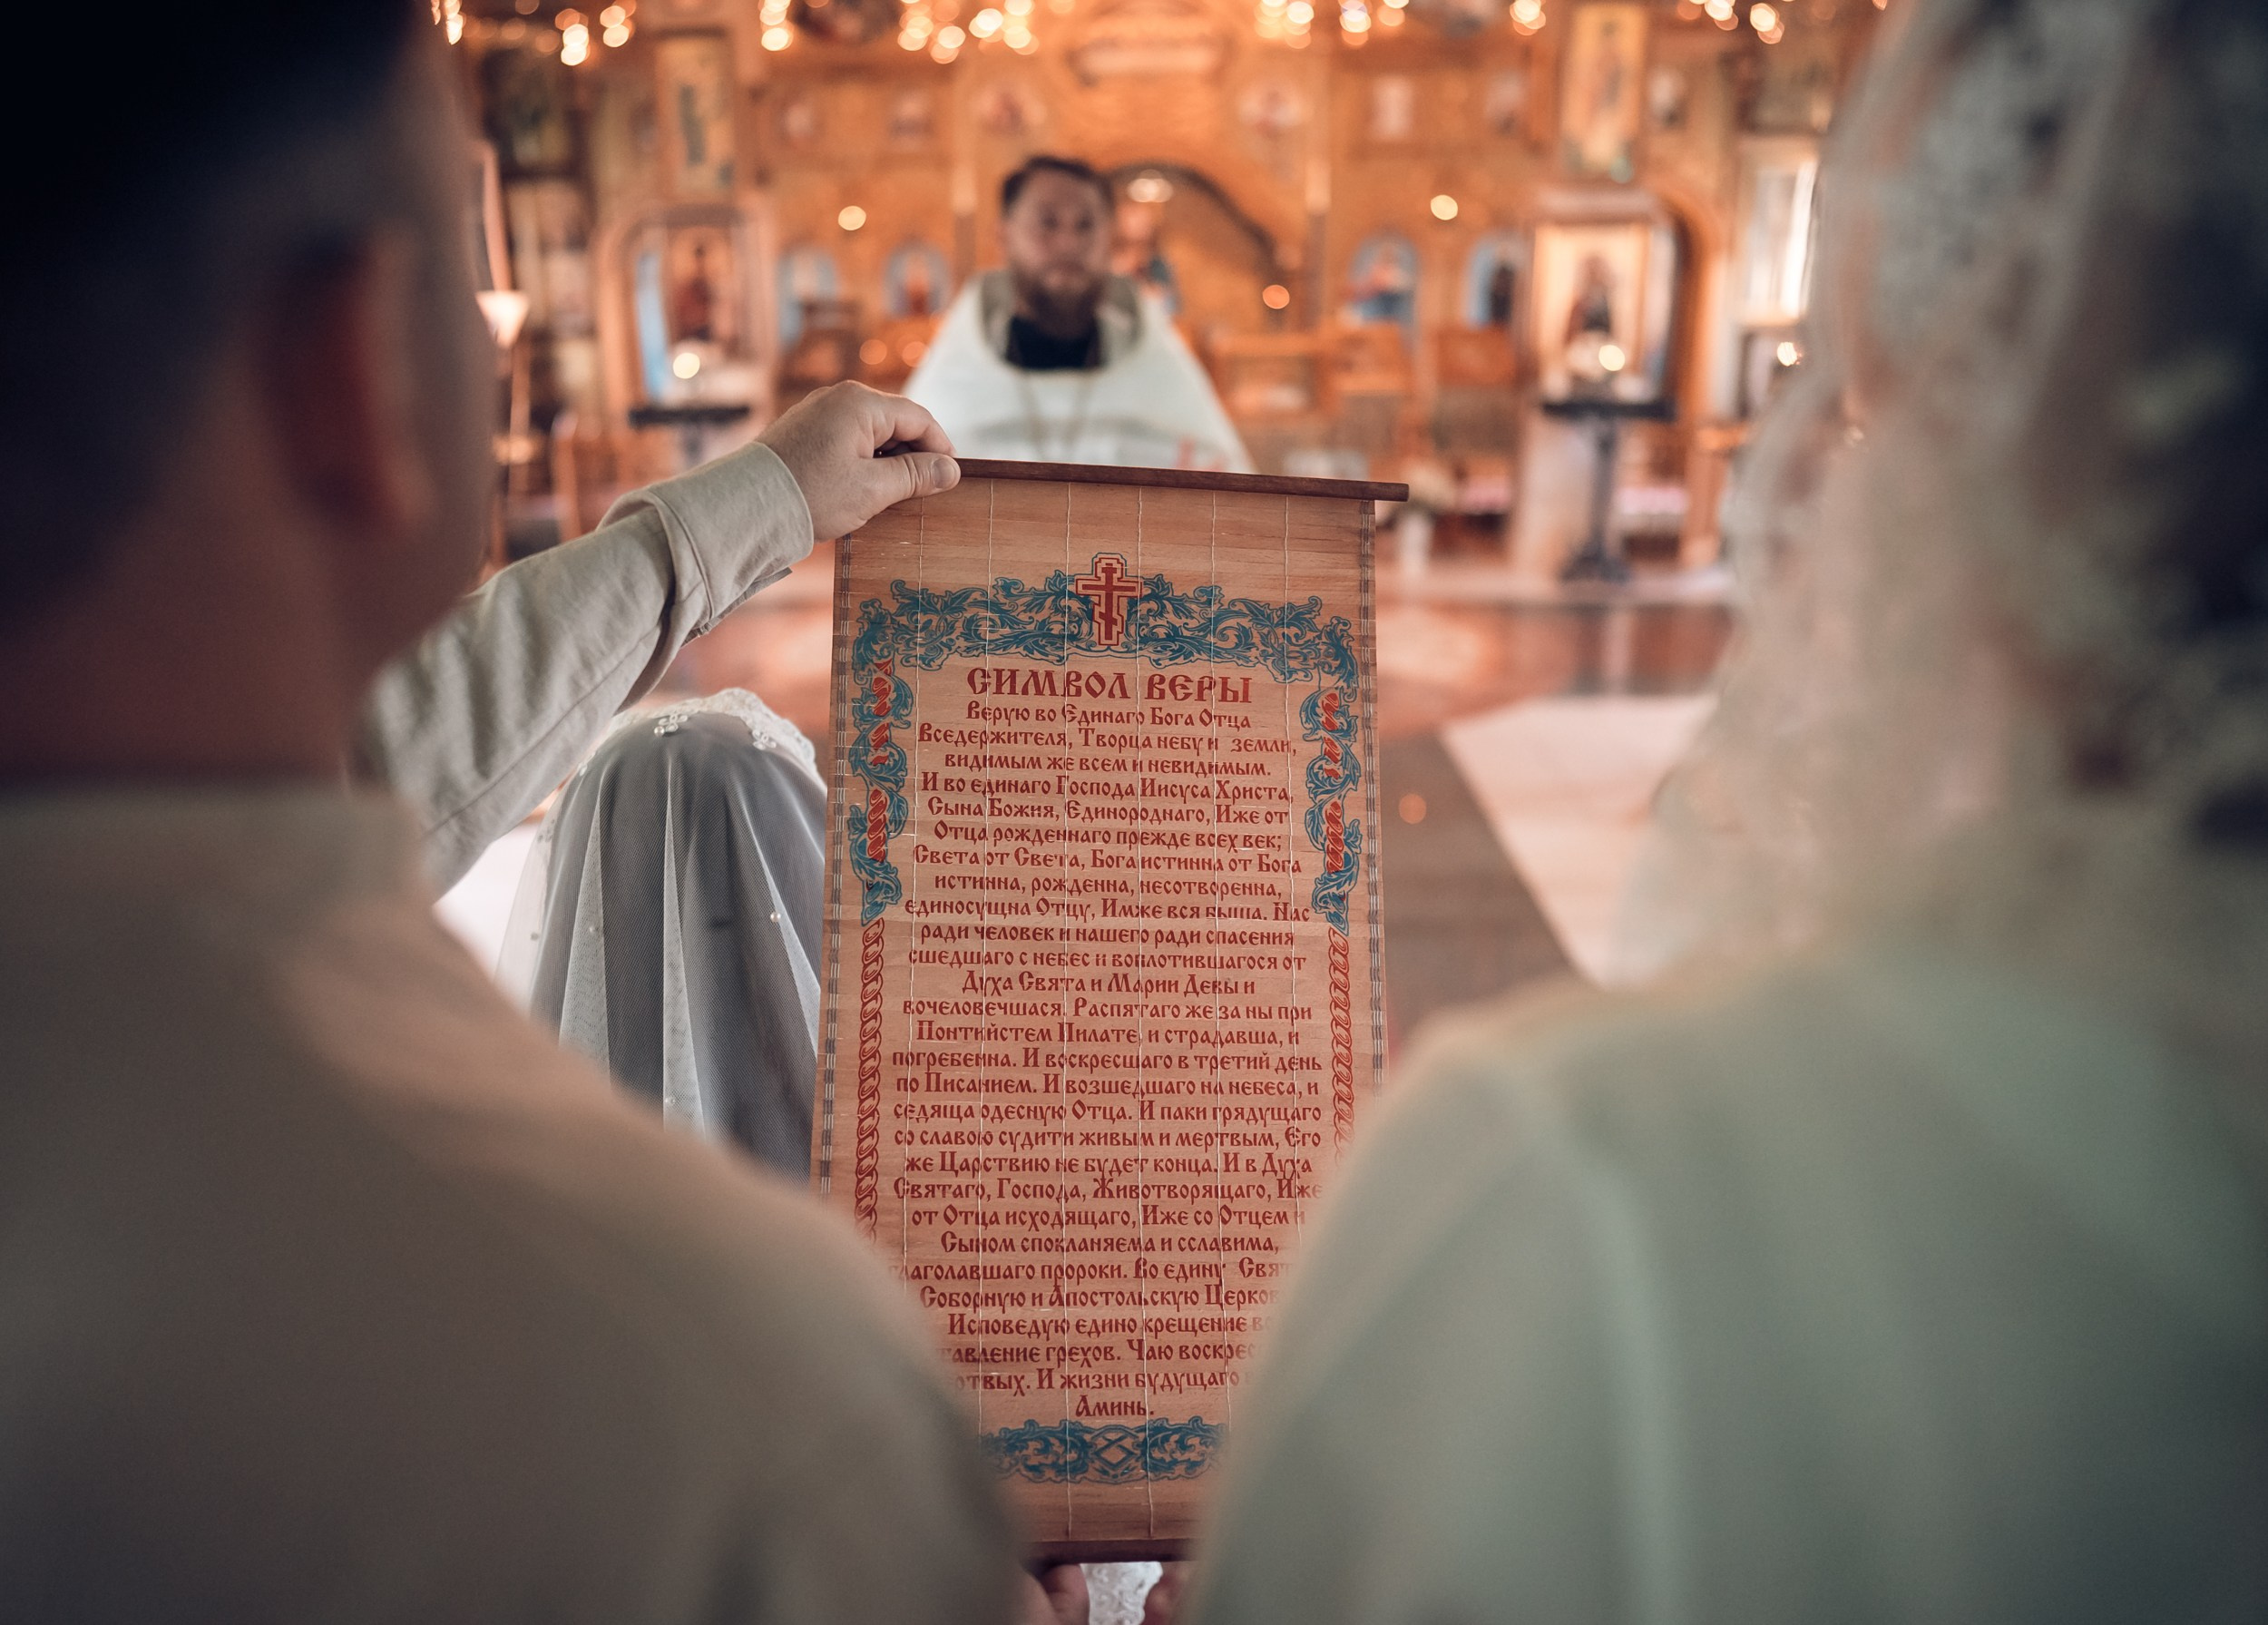 СИМВОЛ ВЕРЫ
Верую во Єдинаго Бога Отца
Вседержителя, Творца небу и земли,
видимым же всем и невидимым.
И во единаго Господа Иисуса Христа,
Сына Божия, Єдинороднаго, Иже от
Отца рожденнаго прежде всех век;
Света от Света, Бога истинна от Бога
истинна, рожденна, несотворенна,
единосущна Отцу, Имже вся быша. Нас
ради человек и нашего ради спасения
сшедшаго с небес и воплотившагося от
Духа Свята и Марии Девы и
вочеловечшася. Распятаго же за ны при
Понтийстем Пилате, и страдавша, и
погребенна. И воскресшаго в третий день
по Писанием. И возшедшаго на небеса, и
седяща одесную Отца. И паки грядущаго
со славою судити живым и мертвым, Єго
же Царствию не будет конца. И в Духа
Святаго, Господа, Животворящаго, Иже
от Отца исходящаго, Иже со Отцем и
Сыном спокланяема и сславима,
глаголавшаго пророки. Во едину
Соборную и Апостольскую
Исповедую едино крещение
грехов. Чаю
И жизни будущаго
Аминь.